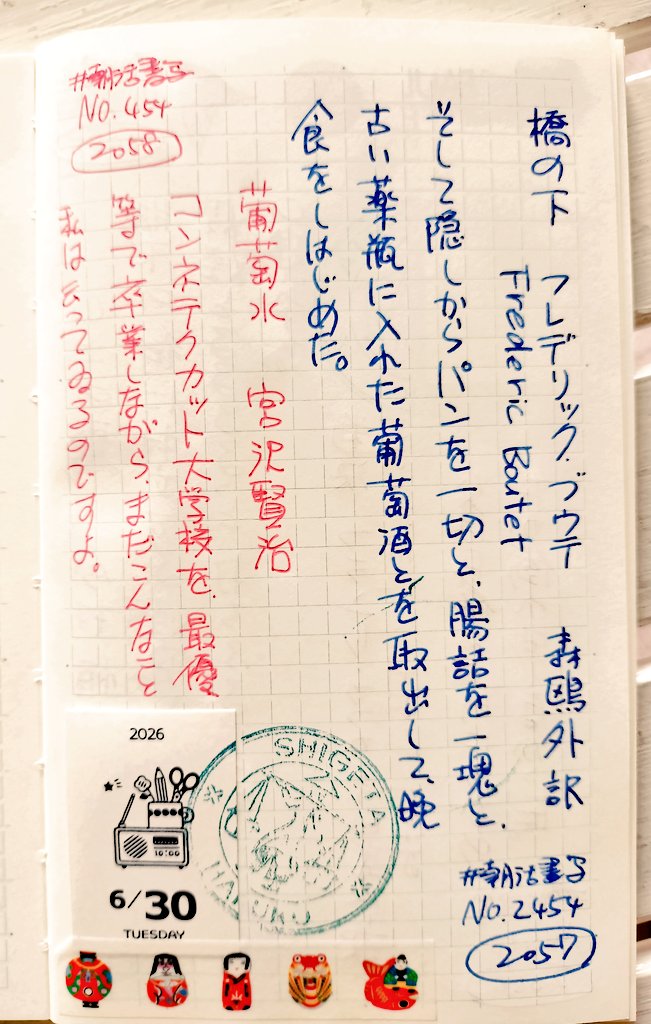 橋の下　フレデリック・ブウテ　森鴎外訳
Frederic Boutet
そして隠しからパンを一切と、腸詰を一塊と、
古い薬瓶に入れた葡萄酒とを取出して、晩
食をしはじめた。
#朝活書写
No.2454
2057
葡萄水　宮沢賢治
コンネテクカット大学校を、最優
等で卒業しながら、まだこんなこと
私は云ってゐるのですよ。
#朝活書写
No.454
2058
2026
10:00
6/30
TUESDAY
SHIGETA
HARUKO